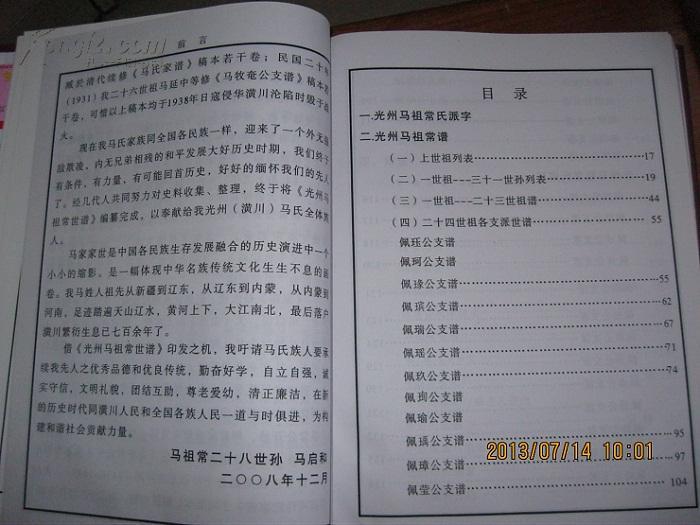 前言
臧於清代续修《马氏家谱》稿本若干卷；民国二十年
(1931)我二十六世祖马延中等修《马牧奄公支谱》稿本若
干卷，可惜以上稿本均于1938年日寇侵华潢川沦陷时毁于战
火。
现在我马氏家族同全国各民族一样，迎来了一个外无强
敌欺凌，内无兄弟相残的和平发展大好历史时期，我们终于
有条件，有力量，有可能回首历史，好好的缅怀我们的先人
了。经几代人共同努力对史料收集、整理，终于将《光州马
祖常世谱》编纂完成，以奉献给我光州（潢川）马氏全体族
人。
马家家世是中国各民族生存发展融合的历史演进中一个
小小的缩影。是一幅体现中华名族传统文化生生不息的画
卷。我马姓人祖先从新疆到辽东，从辽东到内蒙，从内蒙到
河南，足迹踏遍天山辽水，黄河上下，大江南北，最后落户
潢川繁衍生息已七百余年了。
借《光州马祖常世谱》印发之机，我吁请马氏族人要承
续我先人之优秀品德和优良传统，勤奋好学，自立自强，诚
实守信，文明礼貌，团结互助，尊老爱幼，清正廉洁，在新
的历史时代同潢川人民和全国各族人民一道与时俱进，为构
建和谐社会贡献力量。
马祖常二十八世孙 马启和
二〇〇八年十二月
目录
一.光州马祖常氏派字
二.光州马祖常谱
（一）上世祖列表……17
（二）一世祖---三十一世孙列表……19
（三）一世祖---二十三世祖谱……44
（四）二十四世祖各支派世谱……55
佩珏公支谱
佩珂公支谱
佩瑑公支谱……55
佩瑸公支谱……62
佩瑞公支谱……67
佩瑶公支谱……71
佩玖公支谱……74
佩珣公支谱
佩瑜公支谱
佩瑀公支谱……95
佩璋公支谱……97
佩莹公支谱……104
2013/07/14 10:01